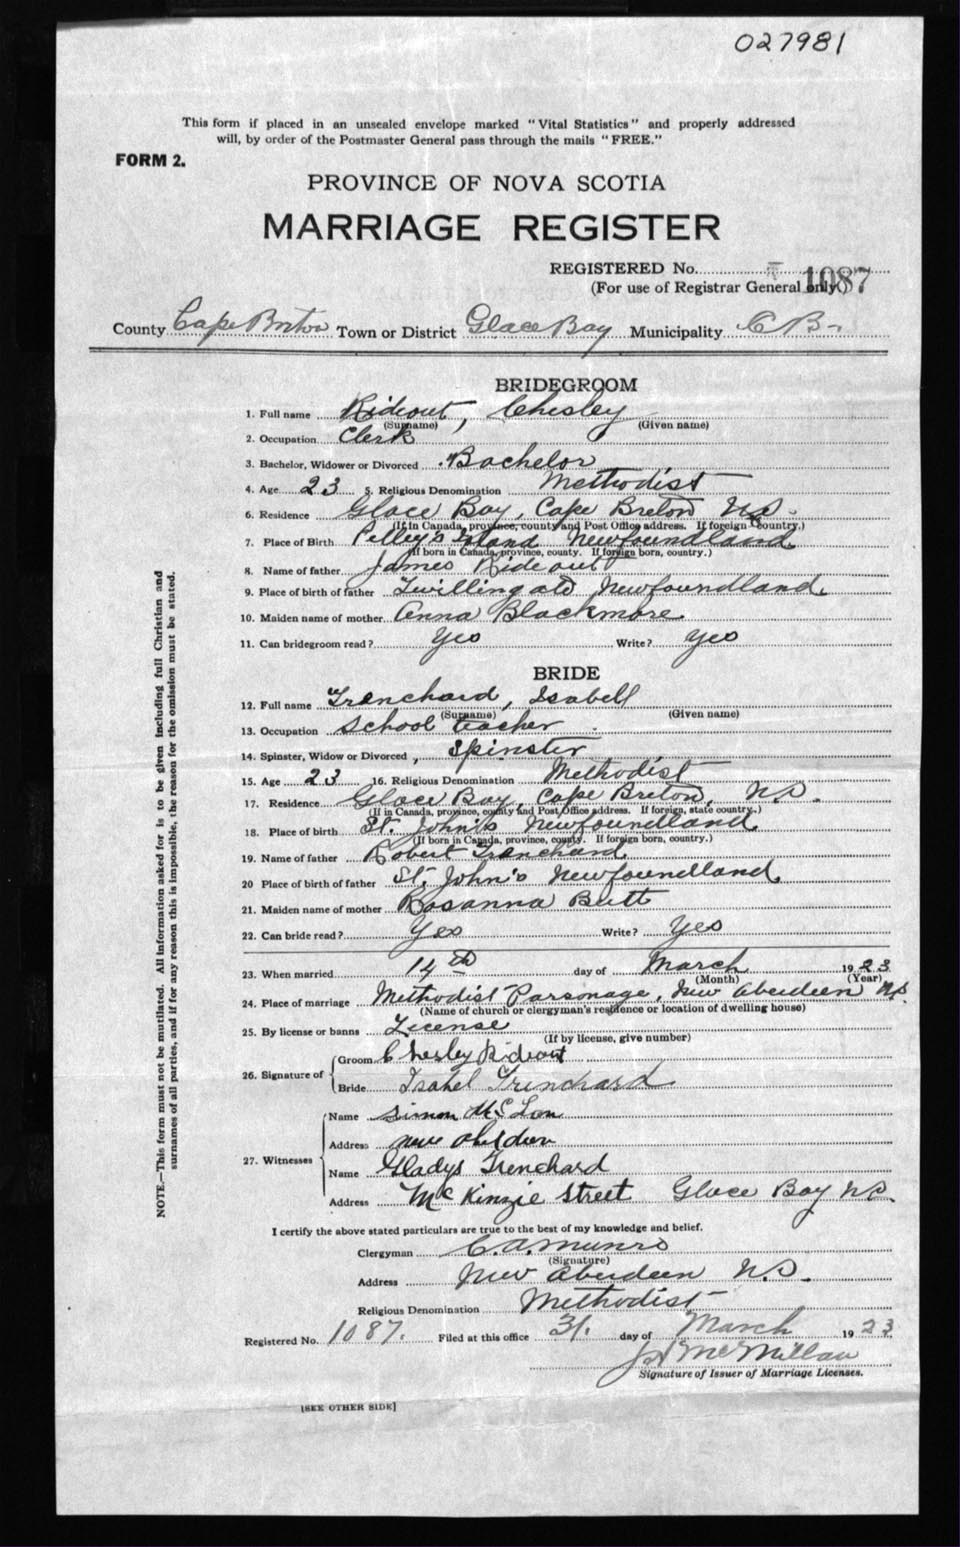 027981
This form if placed in an unsealed envelope marked "Vital Statistics" and properly addressed
will, by order of the Postmaster General pass through the mails "FREE."
FORM 2.
PROVINCE OF NOVA SCOTIA
MARRIAGE REGISTER
REGISTERED No. 1087
(For use of Registrar General only)
County Cape Breton Town or District Glace Bay Municipality C B.
BRIDEGROOM
1. Full name Rideout, Chesley
(Surname) (Given name)
2. Occupation Clerk
3. Bachelor, Widower or Divorced Bachelor
4. Age 23 5. Religious Denomination Methodist
6. Residence Glace Bay, Cape Breton N.S.
(If in Canada, province, county and Post Office address. If foreign country.)
7. Place of Birth Pelley's Island Newfoundland
(If born in Canada, province, county. If foreign born, country.)
8. Name of father James Rideout
9. Place of birth of father Twillingate Newfoundland.
10. Maiden name of mother Anna Blackmore
11. Can bridegroom read? Yes Write? Yes
BRIDE
12. Full name Trenchard, Isabell
(Surname) (Given name)
13. Occupation School teacher
14. Spinster, Widow or Divorced, Spinster
15. Age 23 16. Religious Denomination Methodist
17. Residence Glace Bay, Cape Breton, N.S.
(If in Canada, province, county and Post Office address. If foreign, state country.)
18. Place of birth St. John's Newfoundland
(If born in Canada, province, county. If foreign born, country.)
19. Name of father Robert Trenchard
20 Place of birth of father St. John's Newfoundland.
21. Maiden name of mother Rosanna Butt
22. Can bride read? Yes Write? Yes
23. When married 14th day of March 1923
(Month) (Year)
24. Place of marriage Methodist Parsonage, New Aberdeen N.S.
(Name of church or clergyman's residence or location of dwelling house)
25. By license or banns License
(If by license, give number)
26. Signature of Groom Chesley Rideout
Bride Isabel Trenchard
27. Witnesses Name Simon
Address New Aberdeen
Name Gladys Trenchard
Address McKinzie Street Glace Bay N.S.
I certify the above stated particulars are true to the best of my knowledge and belief.
Clergyman C.A. Munro
(Signature)
Address New Aberdeen N.S.
Religious Denomination Methodist
Registered No. 1087. Filed at this office 31. day of March 1923
McMillan
Signature of Issuer of Marriage Licenses.
[SEE OTHER SIDE]
NOTE.—This form must not be mutilated. All information asked for is to be given including full Christian and
surnames of all parties, and if for any reason this is impossible, the reason for the omission must be stated.